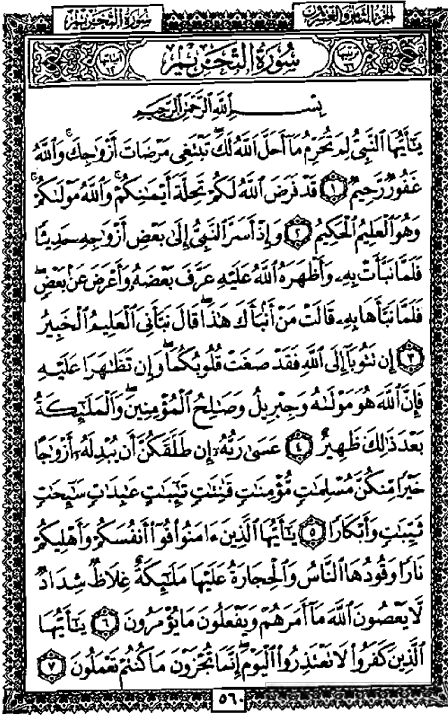 سُورَةُ التَّحْرِيمِ
الجُزءُ الثَّامِنُ وَالعِشْرُونَ
سُورَةُ التَّحْرِيمِ
بِسْمِ ٱللَّهِ ٱلرَّحْمَٰنِ ٱلرَّحِيمِ
يَٰٓأَيُّهَا ٱلنَّبِىُّ لِمَ تُحَرِّمُ مَآ أَحَلَّ ٱللَّهُ لَكَ ۖ تَبْتَغِى مَرْضَاتَ أَزْوَٰجِكَ ۚ وَٱللَّهُ
غَفُورٌ رَّحِيمٌ ١ قَدْ فَرَضَ ٱللَّهُ لَكُمْ تَحِلَّةَ أَيْمَٰنِكُمْ ۚ وَٱللَّهُ مَوْلَىٰكُمْ ۖ
وَهُوَ ٱلْعَلِيمُ ٱلْحَكِيمُ ٢ وَإِذْ أَسَرَّ ٱلنَّبِىُّ إِلَىٰ بَعْضِ أَزْوَٰجِهِۦ حَدِيثًا
فَلَمَّا نَبَّأَتْ بِهِۦ وَأَظْهَرَهُ ٱللَّهُ عَلَيْهِ عَرَّفَ بَعْضَهُۥ وَأَعْرَضَ عَنۢ بَعْضٍ ۖ
فَلَمَّا نَبَّأَهَا بِهِۦ قَالَتْ مَنْ أَنۢبَأَكَ هَٰذَا ۖ قَالَ نَبَّأَنِىَ ٱلْعَلِيمُ ٱلْخَبِيرُ
٣ إِن تَتُوبَآ إِلَى ٱللَّهِ فَقَدْ صَغَتْ قُلُوبُكُمَا ۖ وَإِن تَظَٰهَرَا عَلَيْهِ
فَإِنَّ ٱللَّهَ هُوَ مَوْلَىٰهُ وَجِبْرِيلُ وَصَٰلِحُ ٱلْمُؤْمِنِينَ ۖ وَٱلْمَلَٰٓئِكَةُ
بَعْدَ ذَٰلِكَ ظَهِيرٌ ٤ عَسَىٰ رَبُّهُۥٓ إِن طَلَّقَكُنَّ أَن يُبْدِلَهُۥٓ أَزْوَٰجًا
خَيْرًا مِّنكُنَّ مُسْلِمَٰتٍ مُّؤْمِنَٰتٍ قَٰنِتَٰتٍ تَٰٓئِبَٰتٍ عَٰبِدَٰتٍ سَٰٓئِحَٰتٍ
ثَيِّبَٰتٍ وَأَبْكَارًا ٥ يَٰٓأَيُّهَا ٱلَّذِينَ ءَامَنُوا۟ قُوٓا۟ أَنفُسَكُمْ وَأَهْلِيكُمْ
نَارًا وَقُودُهَا ٱلنَّاسُ وَٱلْحِجَارَةُ عَلَيْهَا مَلَٰٓئِكَةٌ غِلَاظٌ شِدَادٌ
لَّا يَعْصُونَ ٱللَّهَ مَآ أَمَرَهُمْ وَيَفْعَلُونَ مَا يُؤْمَرُونَ ٦ يَٰٓأَيُّهَا
ٱلَّذِينَ كَفَرُوا۟ لَا تَعْتَذِرُوا۟ ٱلْيَوْمَ ۖ إِنَّمَا تُجْزَوْنَ مَا كُنتُمْ تَعْمَلُونَ ٧
٥٦٠